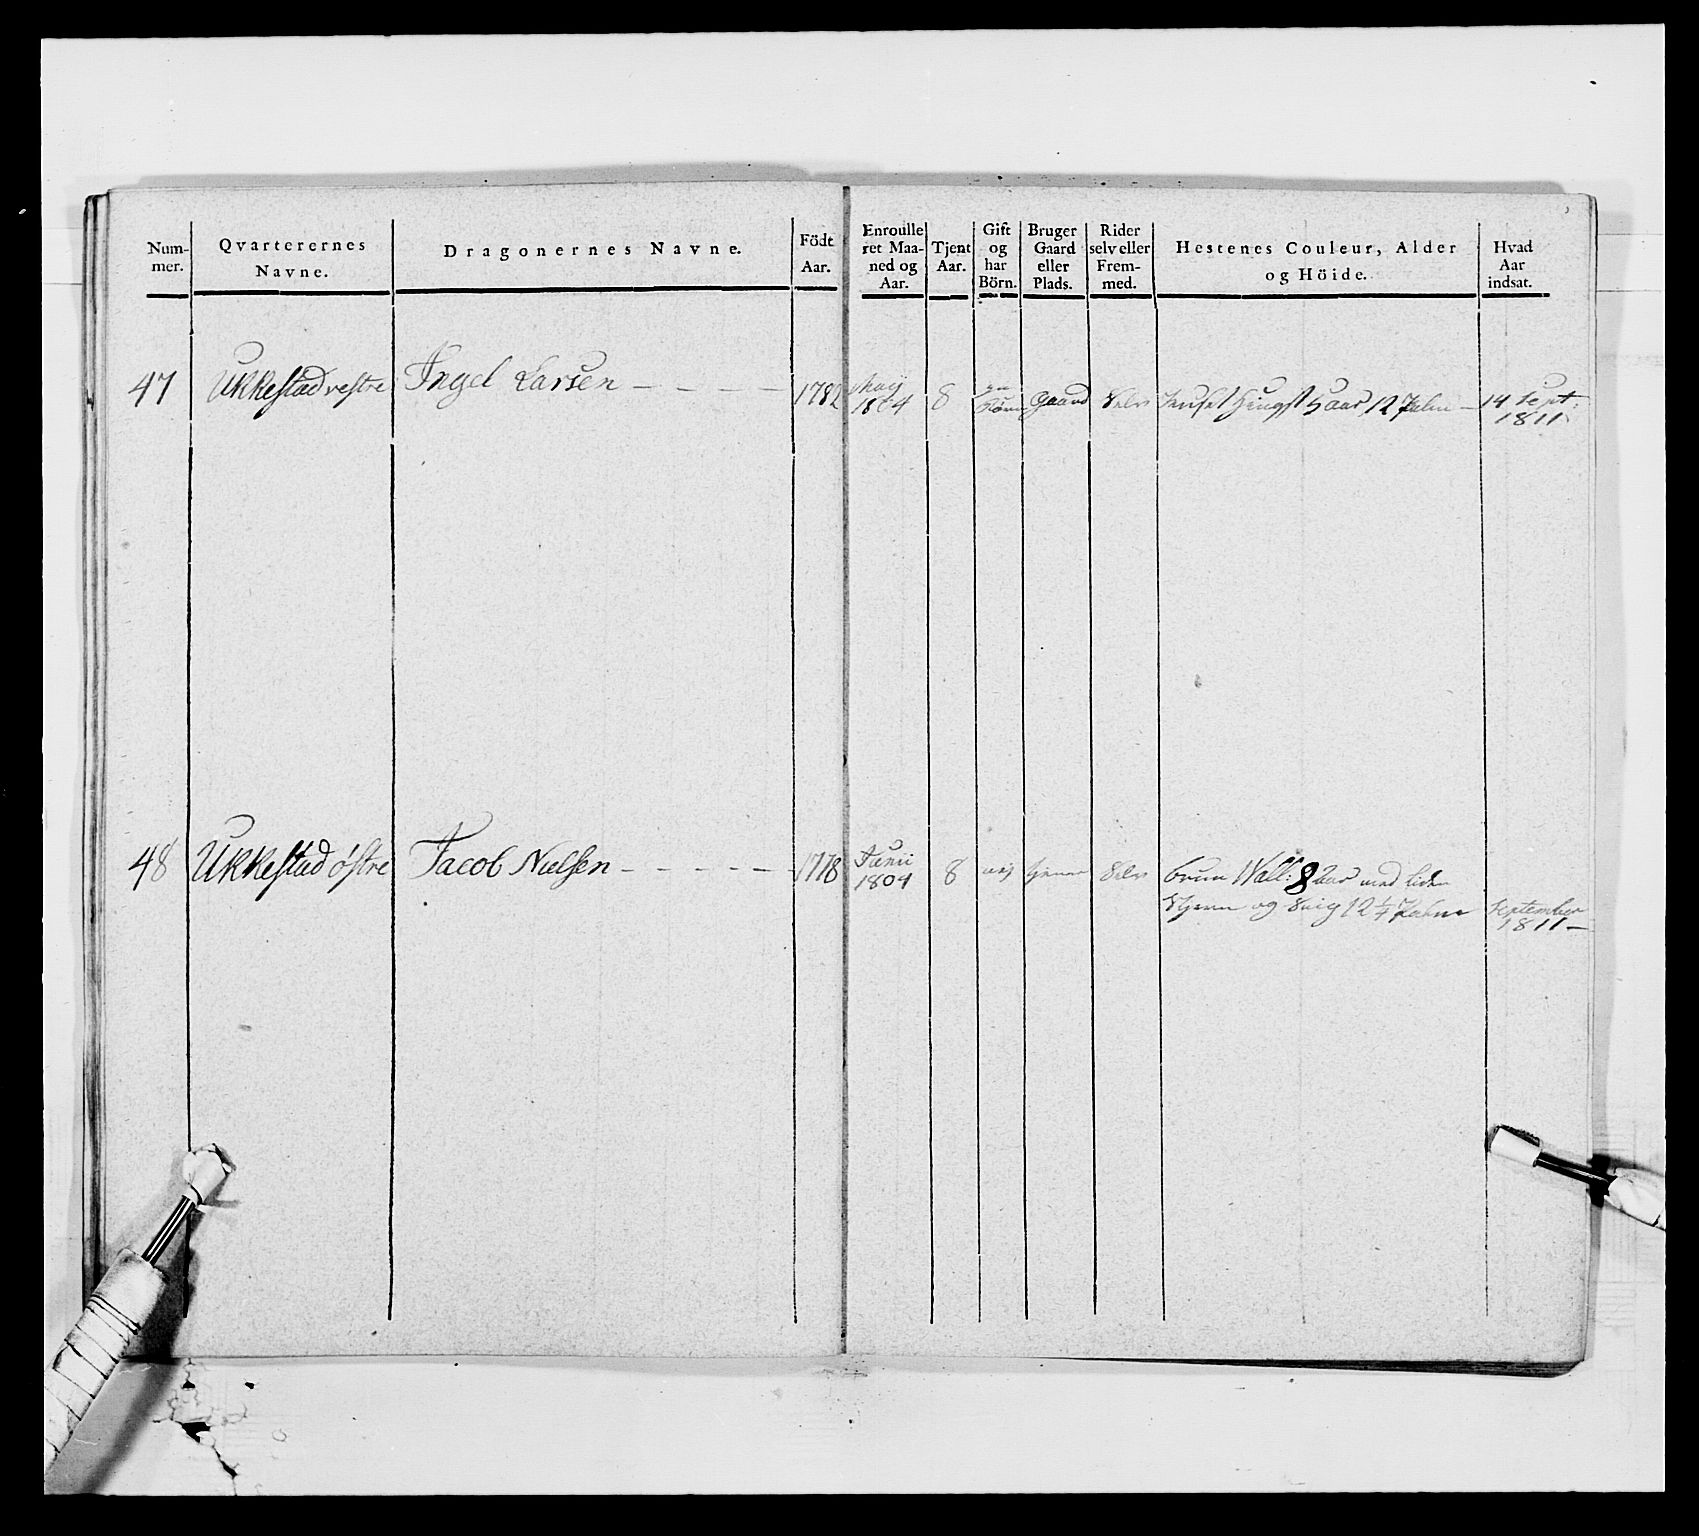 Num-
mer.
Qvarterernes
Navne.
Dragonernes Navne.
Födt
Aar.
Enroulle
ret Maa-
ned og
Aar.
Tjent
Aar.
Gift
og
har
Börn.
Bruger
Gaard
eller
Plads.
Rider
selv eller
Frem-
med.
Hestenes Couleur, Alder
og Höide.
Hvad
Aar
indsat.
47
Ukkestad vestre
Ingel Larsen
1782
May
1804
8
Gaard
Selv
Hingst 5 aar 12 Palm
14 Sept:
1811
48
Ukkestad østre
Jacob Nielsen
1778
Junii
1804
8
nej
tjener
Selv
brun Wall: 8 aar med liden
Stjerne og Snig 12 1/4 Palme
September
1811